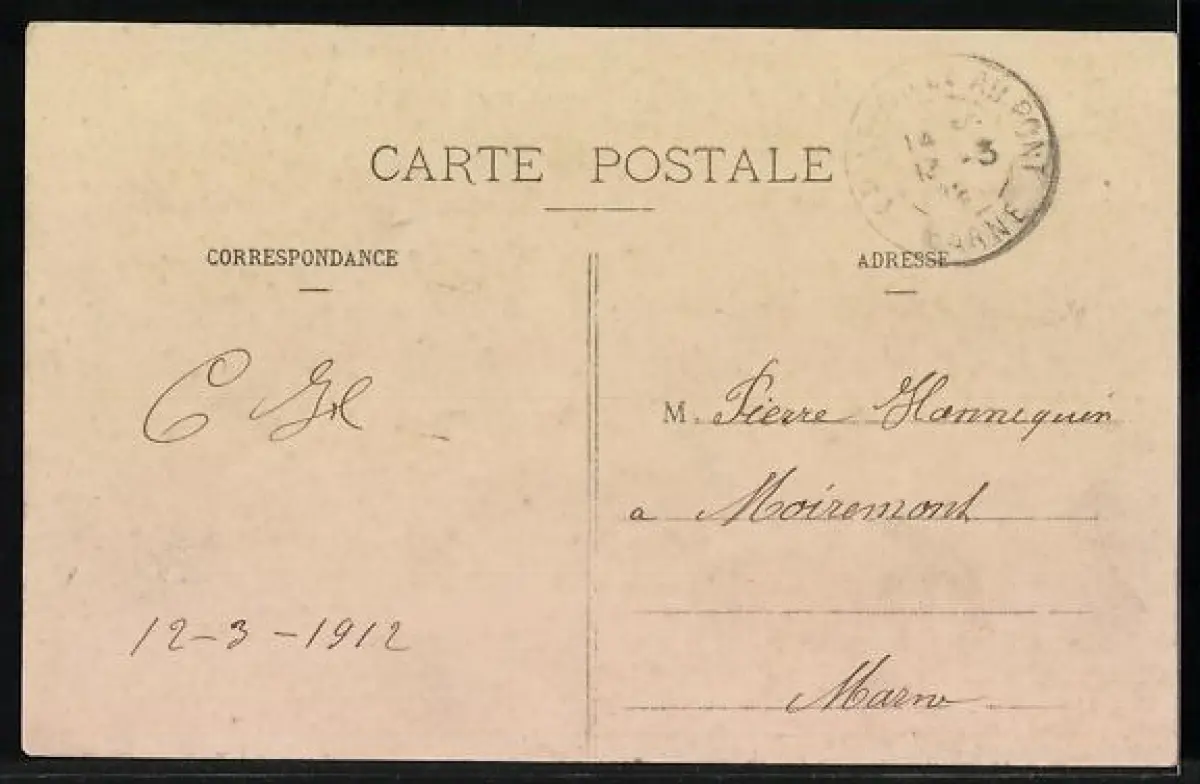 CARTE POSTALE
AU PONT
14
13 -3
MARNE
CORRESPONDANCE
ADRESSE
C
M. Pierre Hannequin
a Moiremont
12-3-1912
Marne